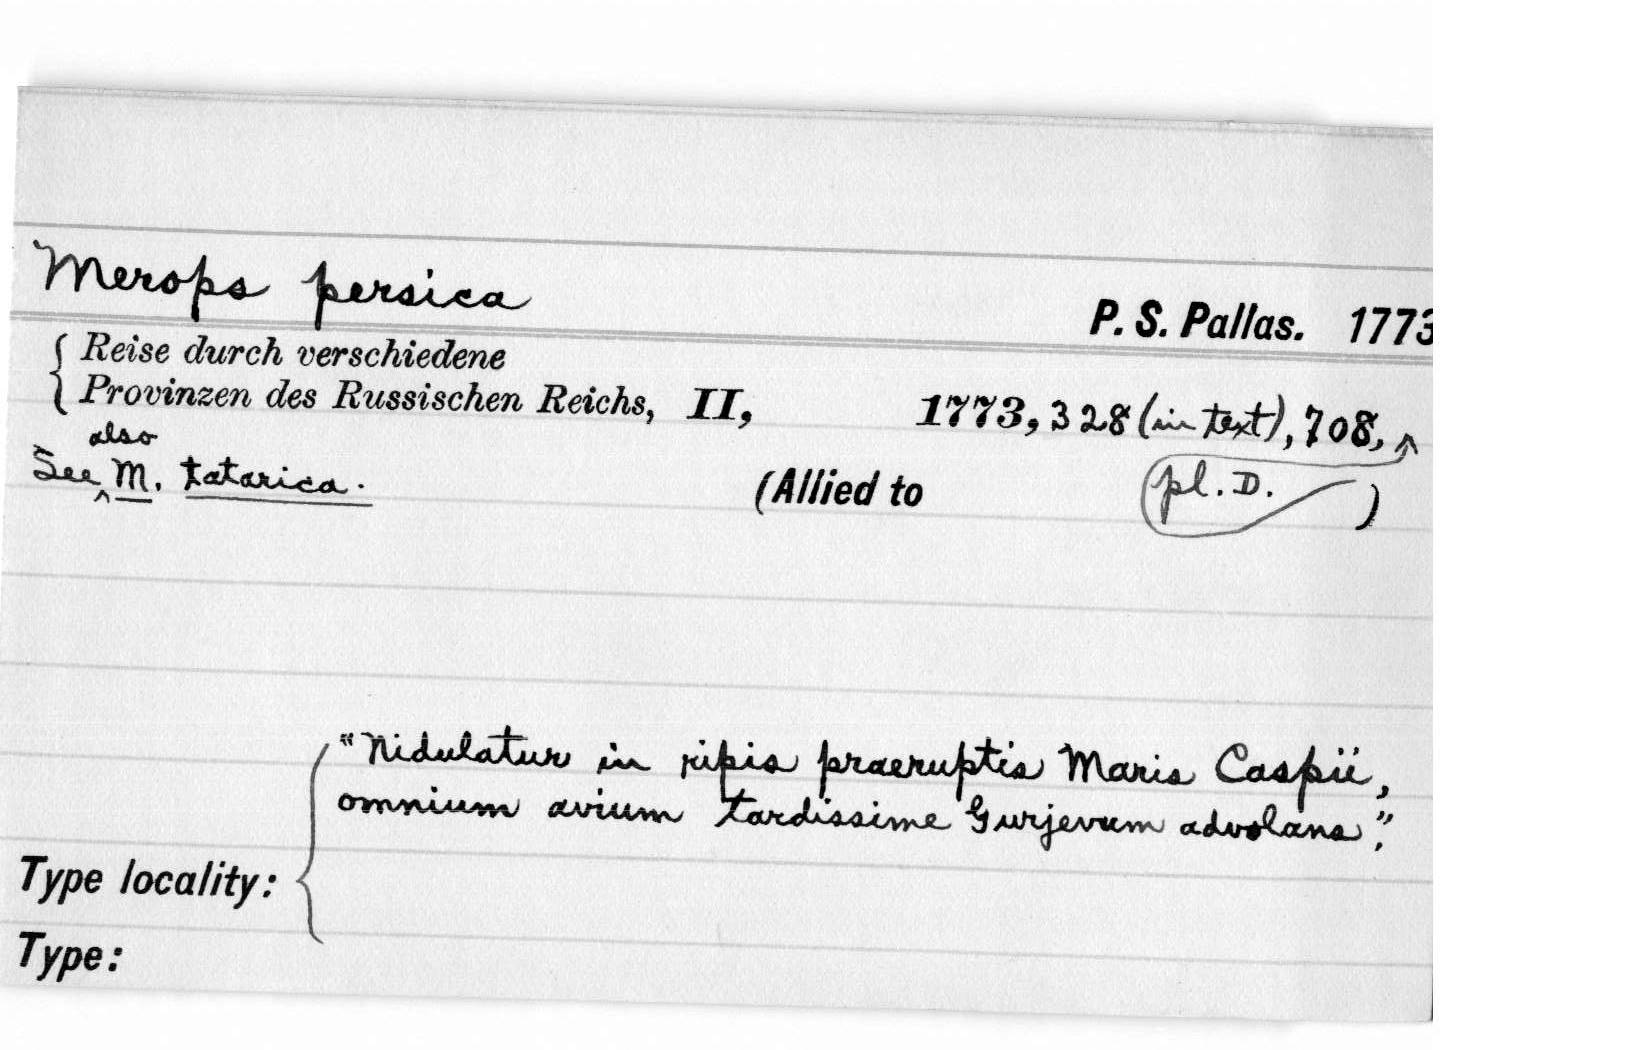 Merops persica
P. S. Pallas. 1773
Reise durch verschiedene
Provinzen des Russischen Reichs, II, 1773, 328 (in text), 708, ^
also
See ^ M. tatarica.
(Allied to pl. D. )
"Nidulatur in ripis praeruptis Maris Caspii,
omnium avium tardissime Gurjevum advolans".
Type locality:
Type: